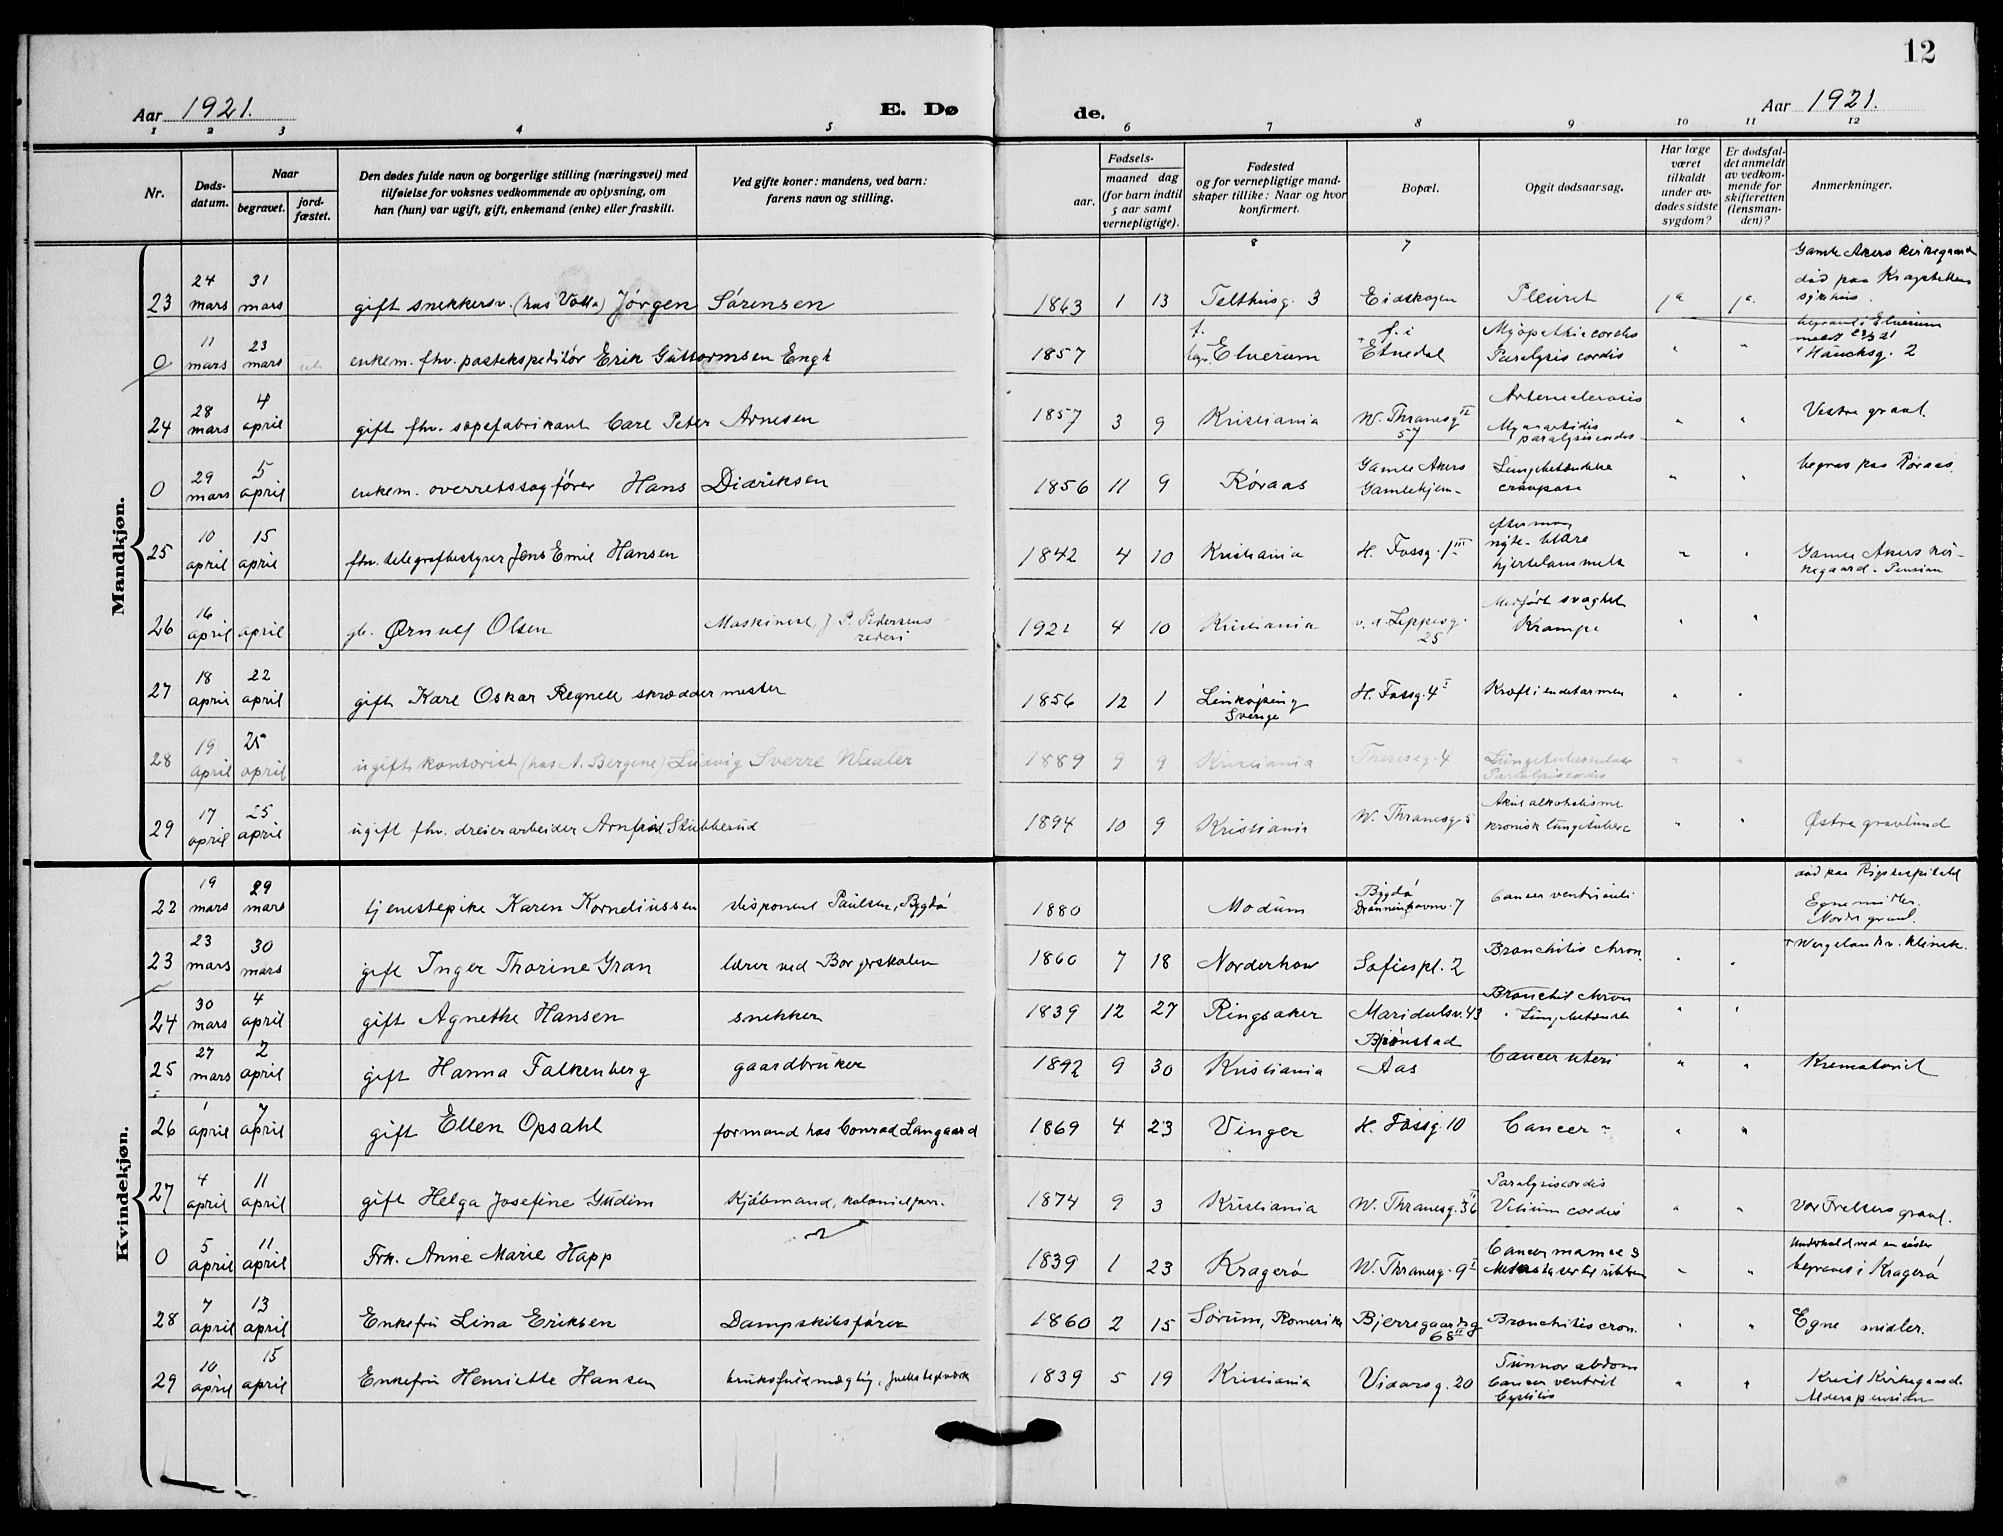 12
Aar 1921.
E. Dø
de.
Aar 1921.
1 2 3 4 5 6 7 8 9 10 11 12
Nr.
Døds-
datum.
Naar
begravet.
jord-
fæstet.
Den dødes fulde navn og borgerlige stilling (næringsvei) med
tilføielse for voksnes vedkommende av oplysning, om
han (hun) var ugift, gift, enkemand (enke) eller fraskilt.
Ved gifte koner: mandens, ved barn:
farens navn og stilling.
Fødsels-
aar.
maaned dag
(for barn indtil
5 aar samt
vernepligtige).
Fødested
og for vernepligtige mand-
skaper tillike: Naar og hvor
konfirmert.
Bopæl.
Opgit dødsaarsag.
Har læge
været
tilkaldt
under av-
dødes sidste
sygdom?
Er dødsfal-
det anmeldt
av vedkom-
mende for
skifteretten
(lensman-
den)?
Anmerkninger.
8 7
Mandkjøn.
Gamle Akers kirkegaard
død paa Krogstøttens
sykehus.
23 24 mars 31 mars gift snekkersv. (hos Volla) Jørgen Sørensen 1863 1 13 Telthusg. 3 Eidskogen Pleurit Ja Ja.
0 11 mars 23 mars enkem. fhv. postekspeditør Erik Guttormsen Engh 1857 Elverum f. i Etnedal
Myopathia cordis
Paralysis cordis " "
begravet i Elverum
Hauchsg. 2
24 28 mars 4 april gift fhv. sæpefabrikant Carl Peter Arnesen 1857 3 9 Kristiania W. Thranesg II
57
paralysis cordis " " Vestre gravl.
0 29 mars 5 april enkem. overretssagfører Hans Didriksen 1856 11 9 Røraas Gamle Akers
Gamlehjem
Lungebetændelse
croupøse " " begrav paa Røraas.
25 10 april 15 april fhv. telegrafbestyrer Jens Emil Hansen 1842 4 10 Kristiania H. Fossg. 1 III
hjertelammelse " " Gamle Akers kir-
kegaard - Pension
26 16 april april gb. Ørnulf Olsen Maskinist, J. P. Pedersens
rederi
1921 4 10 Kristiania v. d. Lippesg.
25
Medfødt svaghet
Krampe " "
27 18 april 22 april gift Karl Oskar Regnell skræddermester 1856 12 1 Linkøping
Sverige
H. Fossg. 4 I Kræft i endetarmen " "
28 19 april 25 april ugift kontorist (hos A. Bergene) Ludvig Sverre Waaler 1889 9 9 Kristiania Theresesg. 4
Lungetuberkulose
Paralysis cordis " "
29 17 april 25 april ugift fhv. dreierarbeider Arnfred Stubberud 1894 10 9 Kristiania W. Thranesg. 5
Akut alkoholisme
kronisk lungetuberc " " Østre gravlund
Kvindekjøn.
22 19 mars 29 mars tjenestepike Karen Korneliussen disponent Paulsen, Bygdø 1880 Modum Bygdø
Dronninghavnv. 7
Cancer ventriculi
død paa Rigshospitalet
Egne midler.
Nordre gravl.
23 23 mars 30 mars gift Inger Thorine Gran lærer ved Borgerskolen 1860 7 18 Norderhov Sofiespl. 2 Bronchitis chron. " " Wergelandsv. klinik.
24 30 mars 4 april gift Agnethe Hansen snekker 1839 12 27 Ringsaker Maridalsv. 43
Bronchit chron
Lungebetændelse " "
25 27 mars 2 april gift Hanna Falkenberg gaardbruker 1892 9 30 Kristiania Bjønstad
Aas
Cancer uteri " " Krematoriet
26 1 april 7 april gift Ellen Opsahl formand hos Conrad Langaard 1869 4 23 Vinger H. Fossg. 10 Cancer " " "
27 4 april 11 april gift Helga Josefine Gudim Kjøbmand, kolonialforr. 1874 9 3 Kristiania W. Thranesg. 36 II
Paralysis cordis
Vitium cordis " " Vor Frelsers gravl.
0 5 april 11 april Frk. Anne Marie Happ 1839 1 23 Kragerø W. Thranesg. 9 I
Cancer mamae &
Metastaser til ribben " "
Underhold ved en søster
begraves i Kragerø
28 7 april 13 april Enkefru Lina Eriksen Dampskibsfører 1860 2 15 Sørum, Romerike Bjerregaardsg
68 II
Bronchitis cron. " " Egne midler.
29 10 april 15 april Enkefru Henriette Hansen bruksfuldmægtig 1839 5 19 Kristiania Vidarsg. 20
Tumor abdom
Cancer ventricl
Cystitis " "
Krist Kirkegaard.
Alderspension